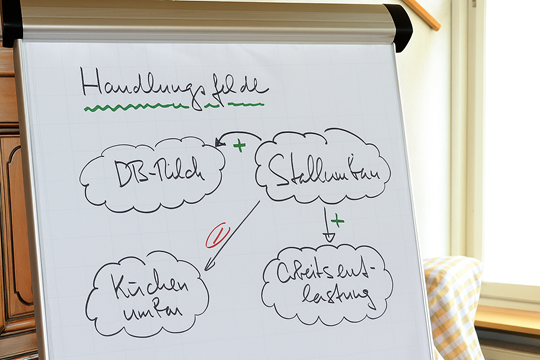 Handlungsfelde
DB-Milch
+
Stallumbau
+
Küchen
umbau
Arbeitsent-
lastung